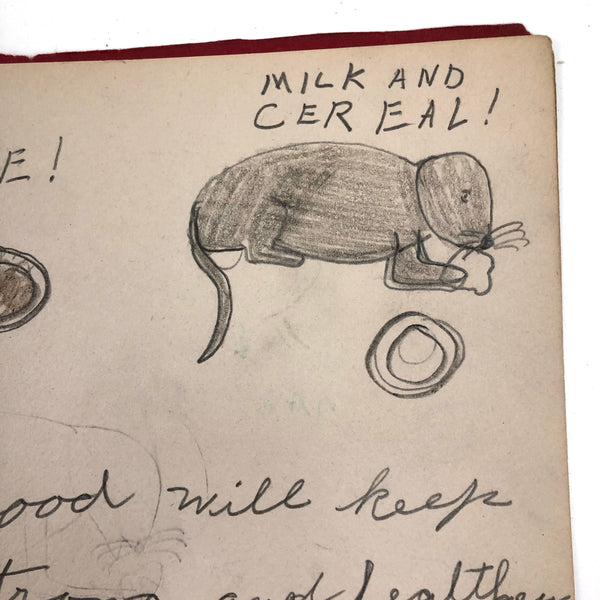 MILK AND
CEREAL!
E!
ood will keep
trong and healthy